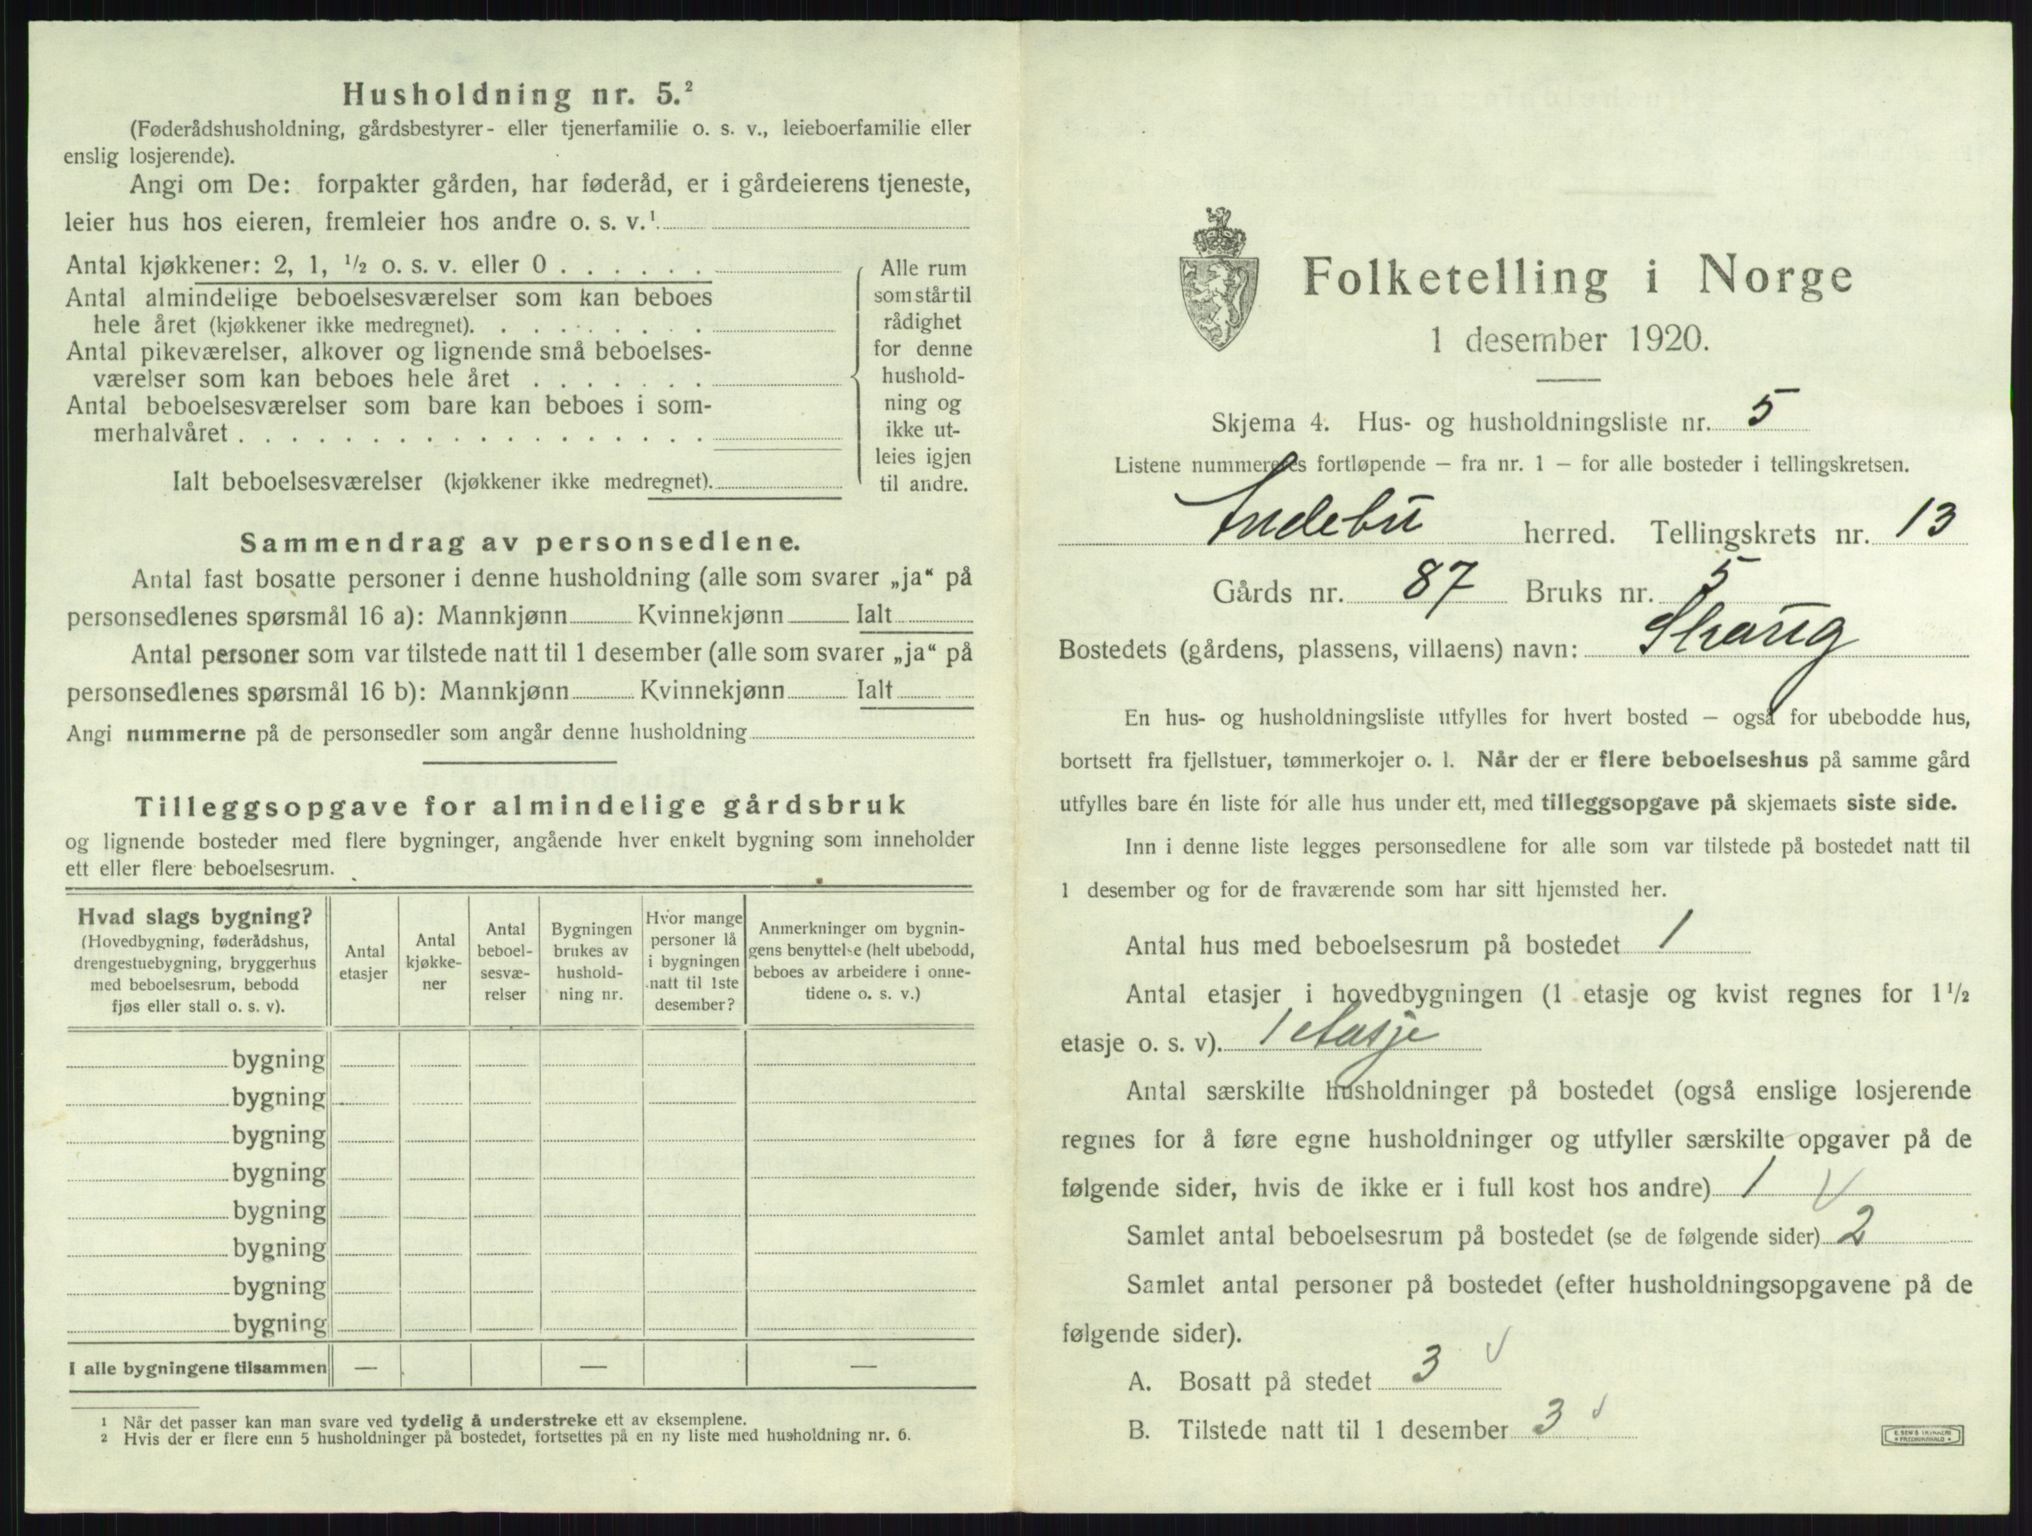 Husholdning nr. 5.²
(Føderådshusholdning, gårdsbestyrer- eller tjenerfamilie o. s. v., leieboerfamilie eller
enslig losjerende).
Angi om De: forpakter gården, har føderåd, er i gårdeierens tjeneste,
leier hus hos eieren, fremleier hos andre o. s. v.¹
Antal kjøkkener: 2, 1, ½ o. s. v. eller 0 . . . . . .
Antal almindelige beboelsesværelser som kan beboes
hele året (kjøkkener ikke medregnet). . . . . . . . .
Antal pikeværelser, alkover og lignende små beboelses-
værelser som kan beboes hele året . . . . . . .
Antal beboelsesværelser som bare kan beboes i som-
merhalvåret . . . . . . . . . . . . . . . . . .
Ialt beboelsesværelser (kjøkkener ikke medregnet).
Alle rum
som står til
rådighet
for denne
hushold-
ning og
ikke ut-
leies igjen
til andre.
Sammendrag av personsedlene.
Antal fast bosatte personer i denne husholdning (alle som svarer „ja“ på
personsedlenes spørsmål 16 a): Mannkjønn Kvinnekjønn Ialt
Antal personer som var tilstede natt til 1 desember (alle som svarer „ja“ på
personsedlenes spørsmål 16 b): Mannkjønn Kvinnekjønn Ialt
Angi nummerne på de personsedler som angår denne husholdning
Tilleggsopgave for almindelige gårdsbruk
og lignende bosteder med flere bygninger, angående hver enkelt bygning som inneholder
ett eller flere beboelsesrum.
Hvad slags bygning?
(Hovedbygning, føderådshus,
drengestuebygning, bryggerhus
med beboelsesrum, bebodd
fjøs eller stall o. s. v).
Antal
etasjer
Antal
kjøkke-
ner
Antal
beboel-
sesvæ-
relser
Bygningen
brukes av
hushold-
ning nr.
Hvor mange
personer lå
i bygningen
natt til 1ste
desember?
Anmerkninger om bygnin-
gens benyttelse (helt ubebodd,
beboes av arbeidere i onne-
tidene o. s. v.)
bygning
bygning
bygning
bygning
bygning
bygning
bygning
bygning
I alle bygningene tilsammen — — —
1 Når det passer kan man svare ved tydelig å understreke ett av eksemplene.
2 Hvis der er flere enn 5 husholdninger på bostedet, fortsettes på en ny liste med husholdning nr. 6.
Folketelling i Norge
1 desember 1920.
Skjema 4. Hus- og husholdningsliste nr. 5
Listene nummereres fortløpende – fra nr. 1 – for alle bosteder i tellingskretsen.
Andebu herred. Tellingskrets nr. 13
Gårds nr. 87 Bruks nr. 5
Bostedets (gårdens, plassens, villaens) navn: Skaug
En hus- og husholdningsliste utfylles for hvert bosted – også for ubebodde hus,
bortsett fra fjellstuer, tømmerkojer o. l. Når der er flere beboelseshus på samme gård
utfylles bare én liste for alle hus under ett, med tilleggsopgave på skjemaets siste side.
Inn i denne liste legges personsedlene for alle som var tilstede på bostedet natt til
1 desember og for de fraværende som har sitt hjemsted her.
Antal hus med beboelsesrum på bostedet 1
Antal etasjer i hovedbygningen (1 etasje og kvist regnes for 1½
etasje o. s. v). 1 etasje
Antal særskilte husholdninger på bostedet (også enslige losjerende
regnes for å føre egne husholdninger og utfyller særskilte opgaver på de
følgende sider, hvis de ikke er i full kost hos andre) 1
Samlet antal beboelsesrum på bostedet (se de følgende sider) 2
Samlet antal personer på bostedet (efter husholdningsopgavene på de
følgende sider).
A. Bosatt på stedet 3
B. Tilstede natt til 1 desember 3